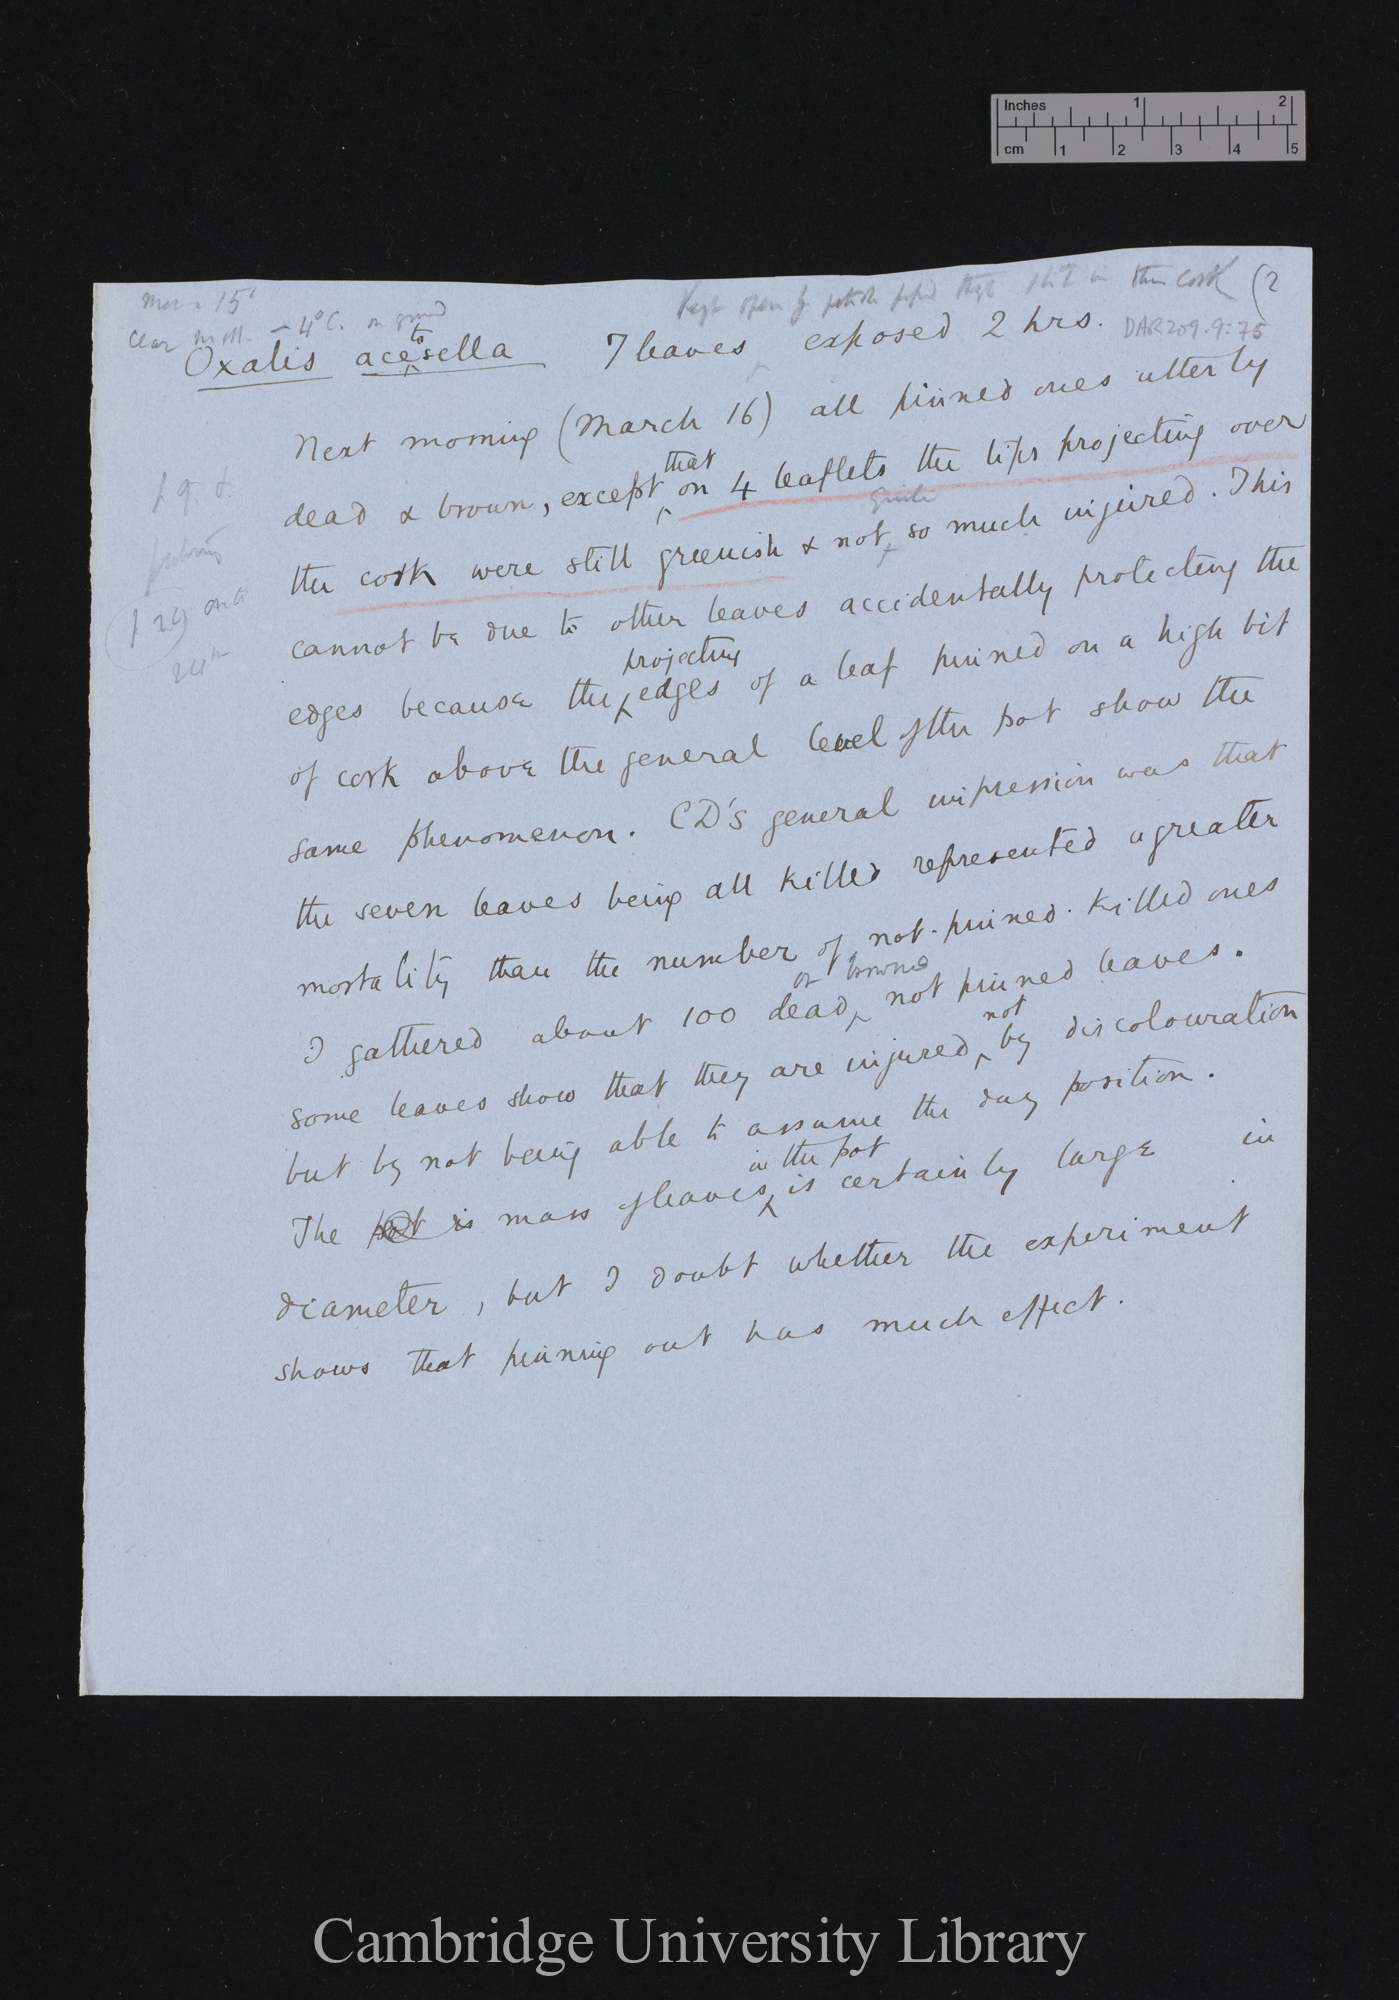 Inches 1 2
cm 1 2 3 4 5
Kept open by slit in thin cork (2
15
Clear night. - 4°C. on ground
DAR 209.9:75
to
Oxalis acesella 7 leaves exposed 2 hrs.
Next morning (March 16) all pinned ones utterly
that
dead & brown, except on 4 leaflets the tips projecting over
quite
the cork were still greenish & not so much injured. This
cannot be due to other leaves accidentally protecting the
projecting
edges because the edges of a leaf pinned on a high bit
of cork above the general level of the pot show the
same phenomenon. CD's general impression was that
the seven leaves being all killed represented a greater
mortality than the number of not-pinned-killed ones
or browned
I gathered about 100 dead not pinned leaves.
not
some leaves show that they are injured by discolouration
but by not being able to assume the day position.
in the pot
The pot is mass of leaves is certainly large in
diameter, but I doubt whether the experiment
shows that pinning out has much effect.
Cambridge University Library